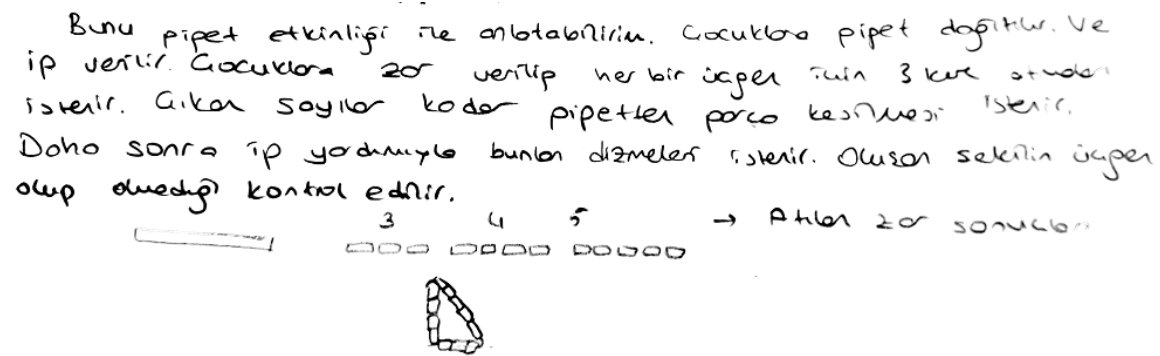 Bunu pipet etkinliği ile anlatabilirim. Çocuklara pipet dağıtılır. Ve
ip verilir. Çocuklara zar verilip her bir üçgen için 3 kere atmaları
istenir. Çıkan sayılar kadar pipetten parça kesilmesi istenir.
Daha sonra ip yardımıyla bunları dizmeleri istenir. Oluşan şekilin üçgen
olup olmadığı kontrol edilir.
3 4 5 → Atılan zar sonuçları